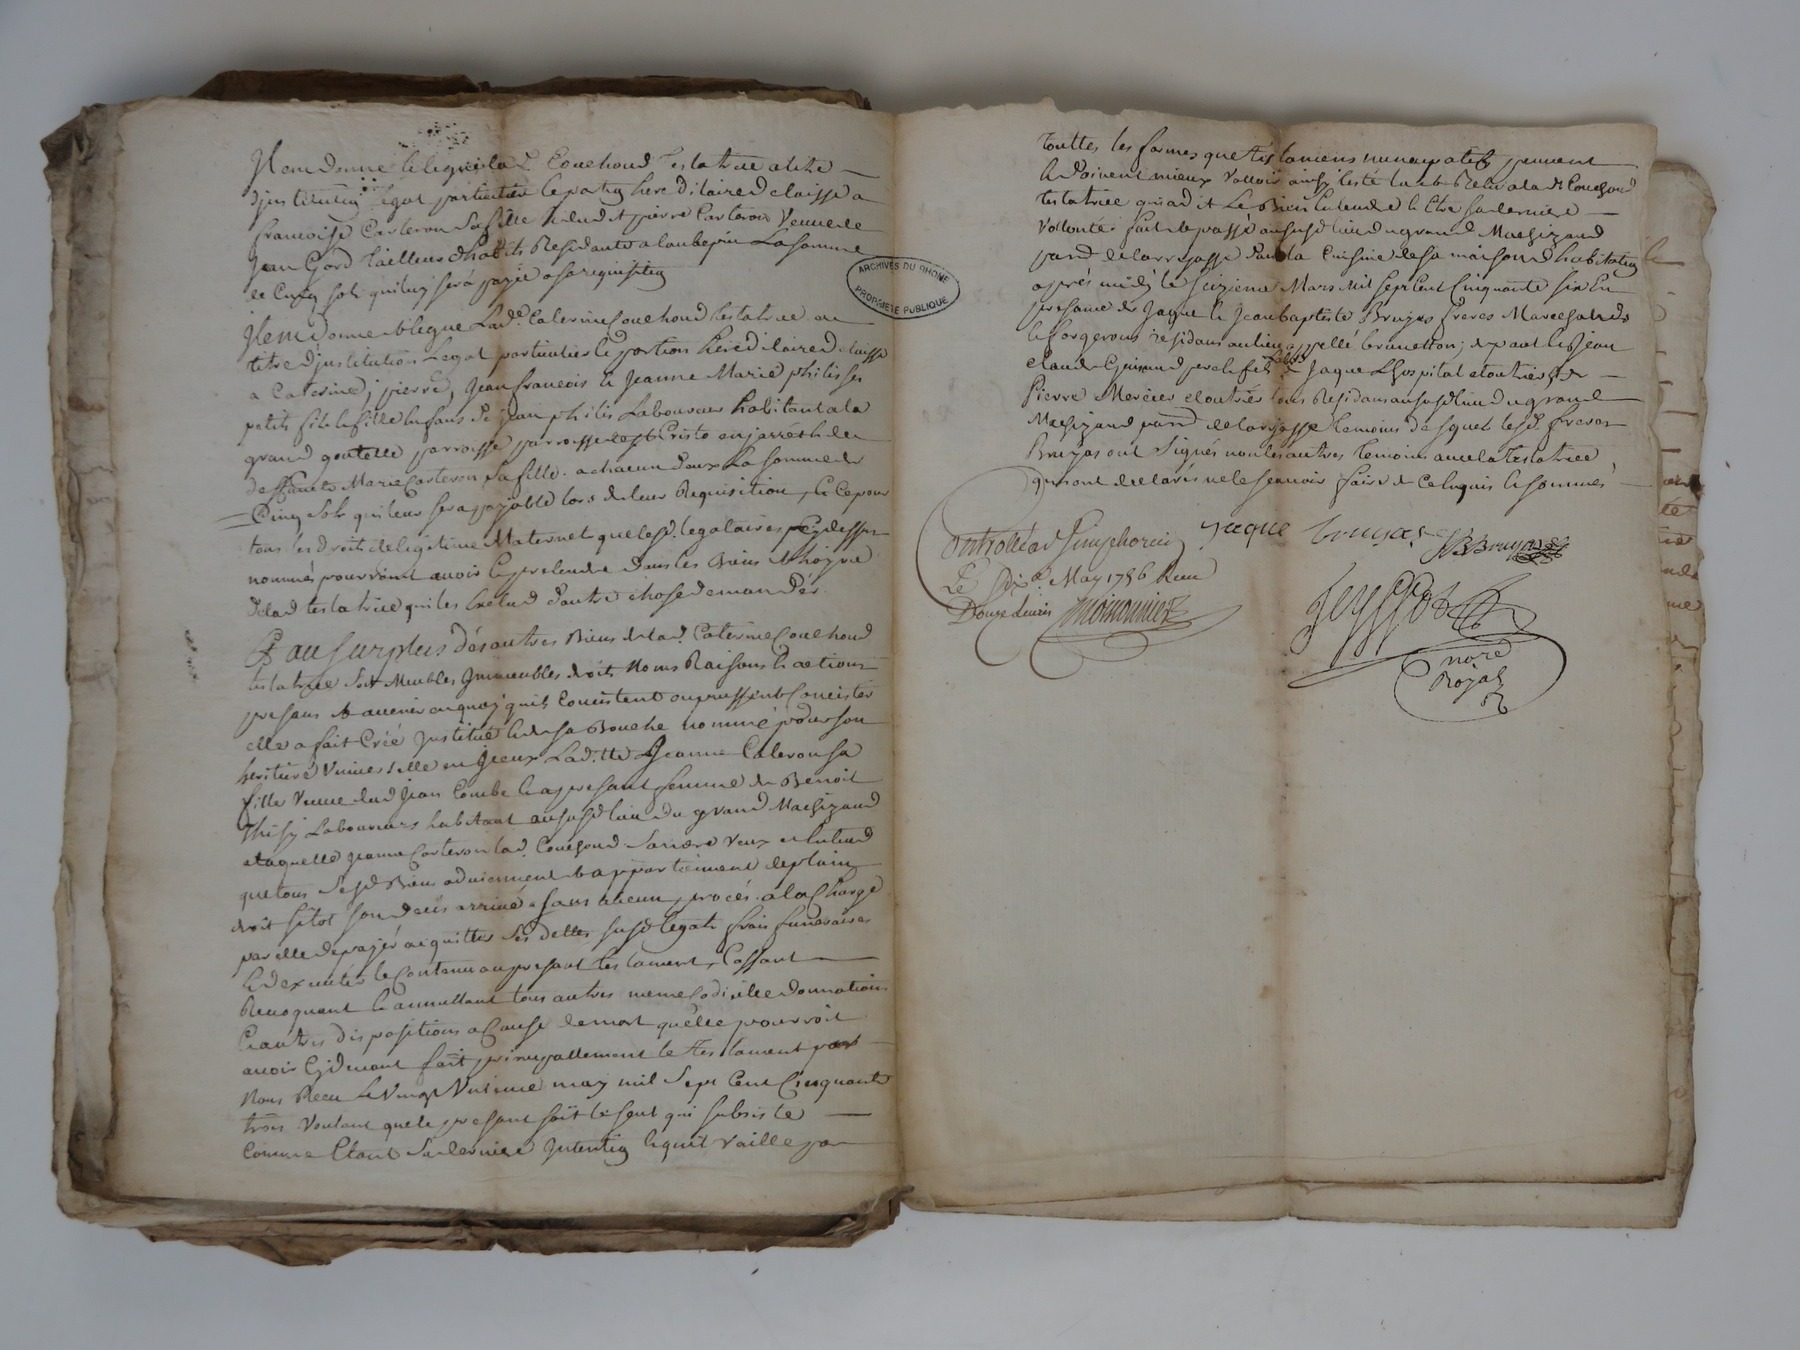 Item donne & legue la d. Couchoud testatrice a titre
d'institution legat particulier & portion hereditaire delaisse a
francoise Carteron sa fille & dud. pierre Carteron Veuve de
Jean Gord tailleur d'habits Residante a laubepin La somme
de Cinq sols qui luy serà payée a sa requisition
ARCHIVES DU RHONE
PROPRIETE PUBLIQUE
Item donne & legue Lad.e Caterine Couchoud testatrice au
titre d'institution Legat particulier & portion hereditaire delaisse
a Caterine, pierre, Jean francois & Jeanne Marie philis ses
petits fils & fille enfans de Jean philis Laboureur habitant a la
grand goutelle parroisse de st Criste en jarrest & de
deffunte Marie Carteron sa fille a chacun deux La somme de
Cinq sols qui leur sera payable lors de leur Requisition, & Ce pour
tous les droits de legitime Maternel que lesd. legataires Cy dessus
nommés pourroint avoir & pretendre dans les Biens & hoyrie
de lad testatrice qui les Exclud d'autre chose demander.
Et au surplus des autres Biens de lad. Caterine Couchoud
testatrice soit Meubles Immeubles droits Noms Raisons & actions
presans & avenir en quoy qu'ils Consistent ou pussent Concister
elle a fait Créé Institué & de sa Bouche nommé pour son
heritiere Universelle en Iceux Laditte Jeanne Cateron sa
fille Veuve dud Jean Combe & apresant femme de Benoit
Thisy Laboureurs habitant au susd lieu du grand Machizaud
a laquelle Jeanne Carteron lad. Couchoud sa mere Veux & Entend
que tous sesd Biens adviennent & appartiennent de plain
droit sitot son deces arrivé & sans aucun procés a la Charge
par elle de payér acquitter ses dettes susd legats frais funeraires
& dexecuter le Contenu au presant testament, Cassant
Revoquant & annullant tous autres meme Codicille donnations
& autres dispositions a Cause de mort quelle pourroit
avoir Cy devant fait principallement le testament par
Nous Receu Le Vingt Unieme may mil Sept Cent Cinquante
trois Voulant que le presant soit le seul qui subsiste
Comme Etant Sa derniere Intention & quil vaille par
touttes les formes que testamens nuncupatifs peuvent
& doivent mieux Valloir ainsy leste lu & Relu a la d. Couchoud
testatrice qui a dit Le Bien Entendre & Etre sa derniere
Vollonté. fait & passé au susd lieu du grand Machizaud
parr. de larrajasse dans la Cuisine de sa maison d'habitation
aprés midy le seizieme Mars Mil Sept Cent Cinquante Six En
presance de Jaque & Jean baptiste Bruyas freres Marechands
& forgerons residans au lieu appellé le brunetton; & paul & Jean
claude Guinand pere & fils Jaque Lhospital cloutiers &
Pierre Mercier cloutier tous Residans au susd lieu du grand
Machizaud parr. de larajasse temoins desquels lesd. freres
Bruyas ont Signés non les autres temoins avec la testatrice
qui ont declarés ne le scavoir faire de Ce Enquis & sommés
Jaque bruyas JB Bruyas
Controllé a st Simphorien
Le Six.e May 1756 Reçu
Douze deniers
Peyssot
no.re
Royal